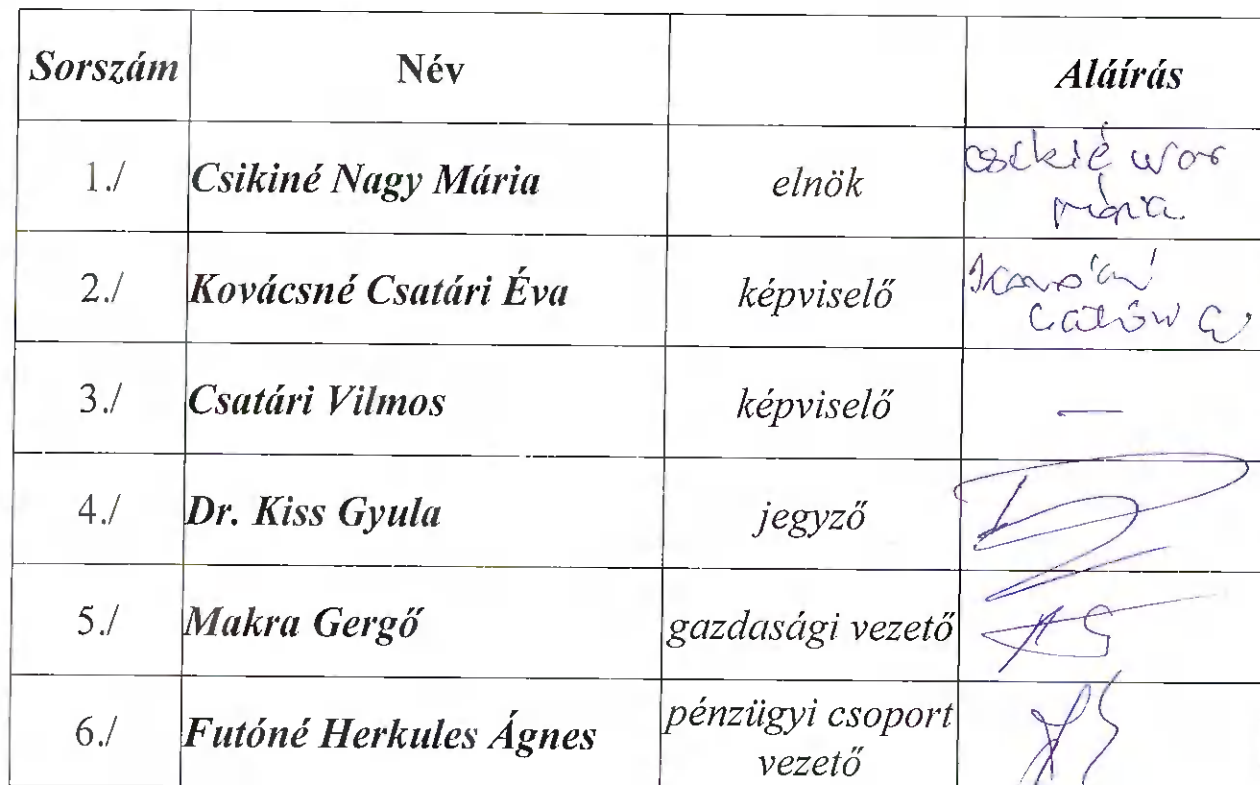 Sorszám Név Aláírás
1./ Csikiné Nagy Mária elnök
2./ Kovácsné Csatári Éva képviselő
3./ Csatári Vilmos képviselő —
4./ Dr. Kiss Gyula jegyző
5./ Makra Gergő gazdasági vezető
6./ Futóné Herkules Ágnes pénzügyi csoport
vezető